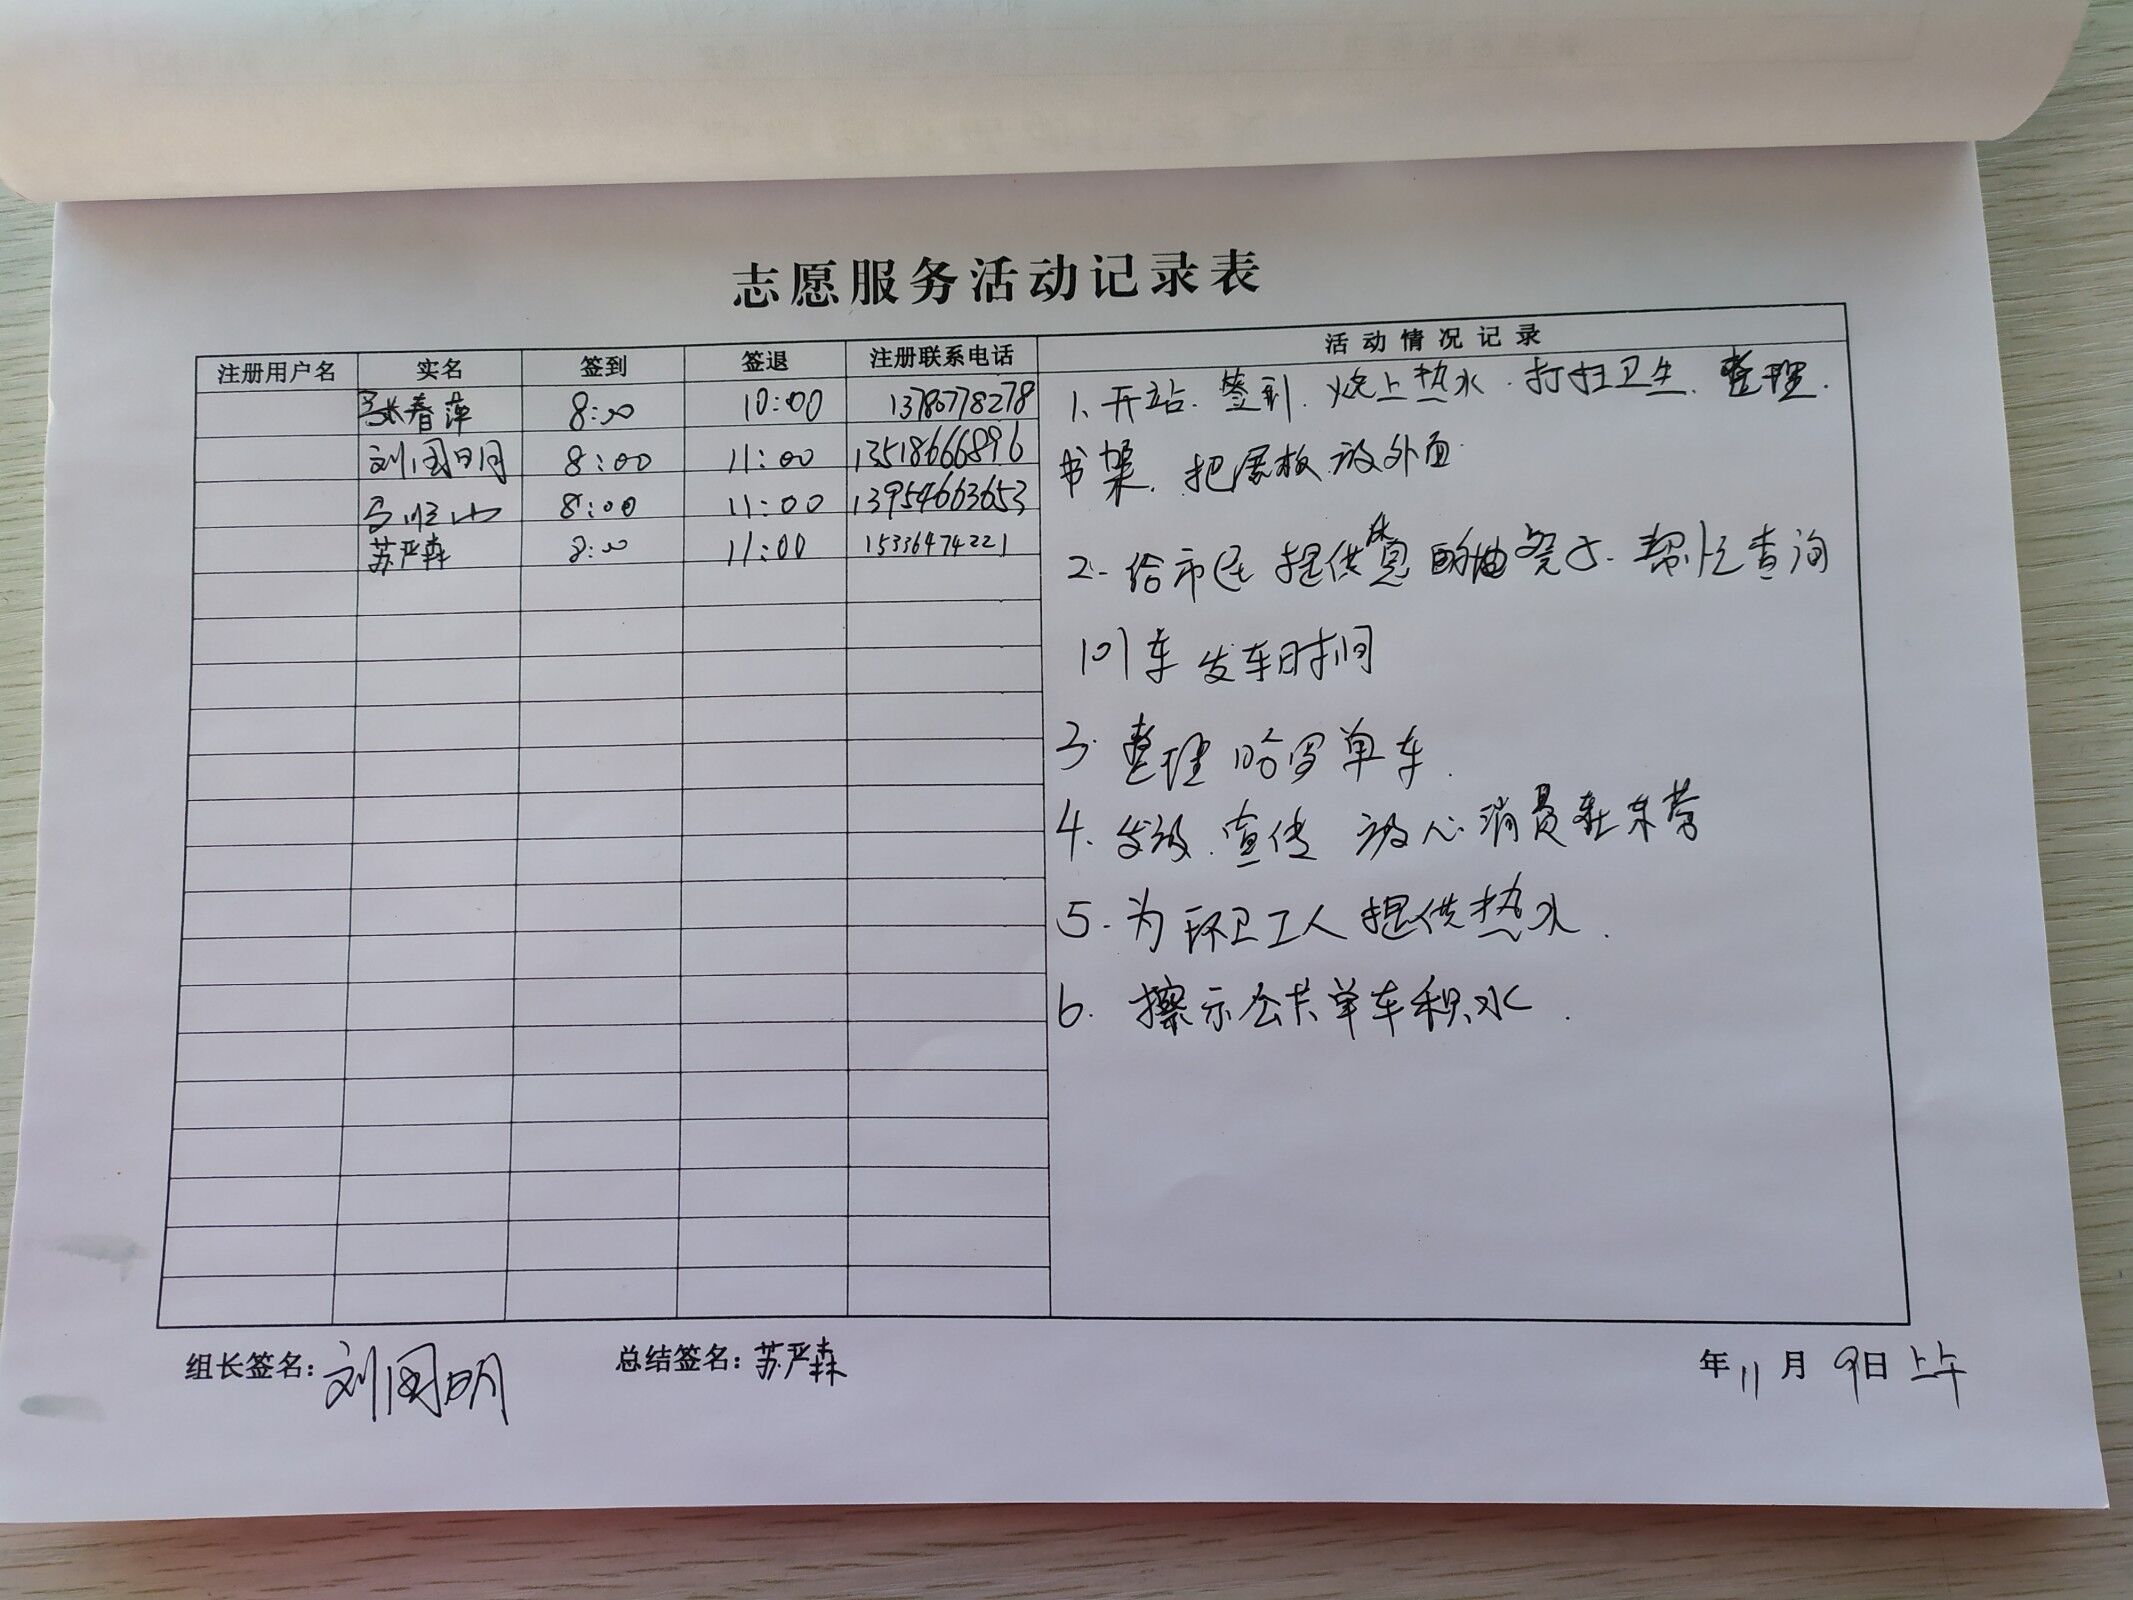 志愿服务活动记录表
注册用户名 实名 签到 签退 注册联系电话 活动情况记录
张春萍 8:00 10:00 13780778278
刘国明 8:00 11:00 13518666896
8:00 11:00 13954663653
苏严森 8:00 11:00 15336474221
1、开站、签到、烧上热水、打扫卫生、整理
书架、把展板放外面
2、给市民提供休息的 凳子、帮忙查询
101车发车时间
3、整理哈罗单车
4、发放、宣传 放心消费在东营
5、为环卫工人提供热水
6、擦示公共单车积水
组长签名:刘国明 总结签名:苏严森 年11月9日上午